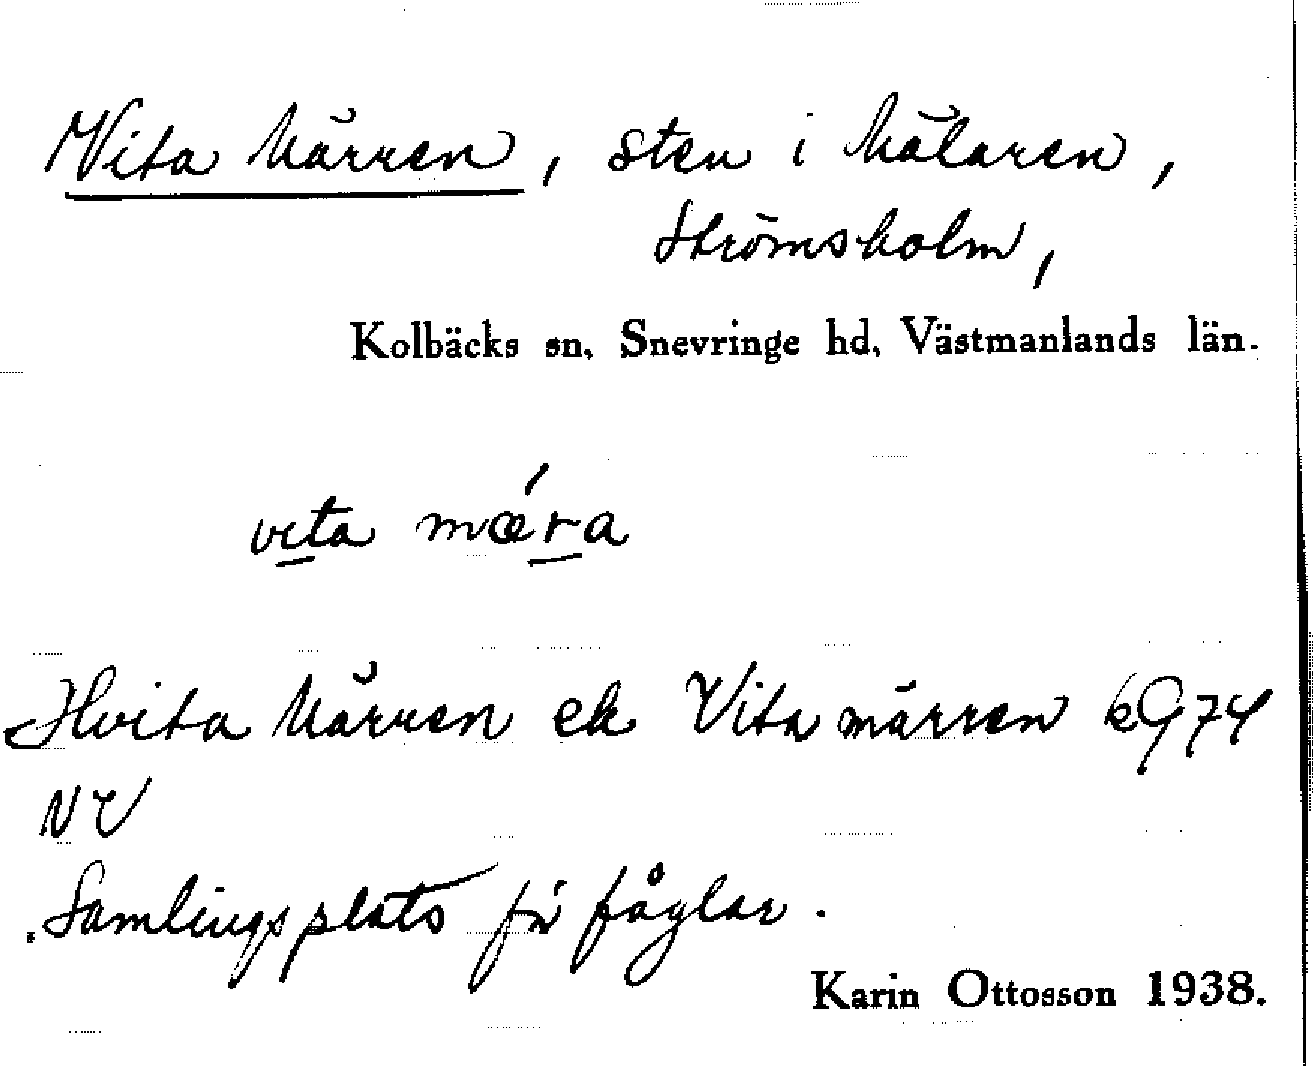 Vita Märren, sten i Mälaren,
Strömsholm,
Kolbäcks sn, Snevringe hd, Västmanlands län.
vita mǽra
Hvita Märren ek Vita märren k974
NV
Samlingsplats för fåglar.
Karin Ottosson 1938.